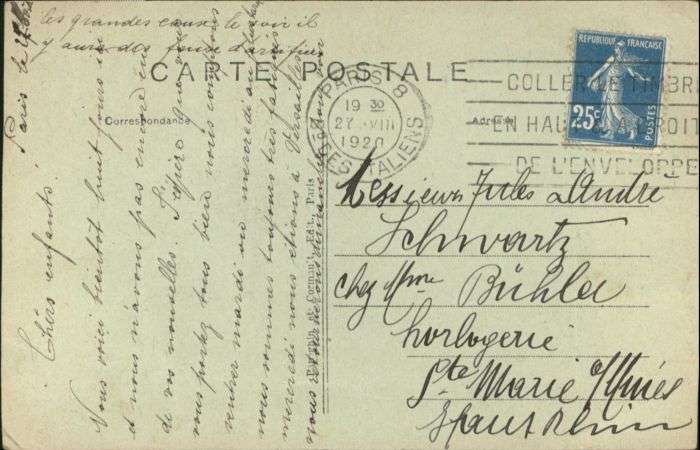 les grandes eaux le soir il
y aura des feux d'artifices
CARTE POSTALE
Correspondance
Adresse
Paris le
Chers enfants.
Vous voici bientôt huit jours
et nous n'avons pas encore eu
de vos nouvelles. J'espère que vous
vous portez tous bien nous comptons
rentrer mardi ou mercredi au
nous sommes toujours très fatigués
mercredi nous étions à Versailles
nous
Edit., Paris
PARIS 8
19 30
27 VIII
1920
ITALIENS
COLLER LE TIMBRE
EN HAUT A DROITE
DE L'ENVELOPPE
REPUBLIQUE FRANÇAISE
25c
POSTES
Messieurs Jules André
Schwartz
chez Mme Bühler
horlogerie
Ste Marie a/Mines
Haut Rhin